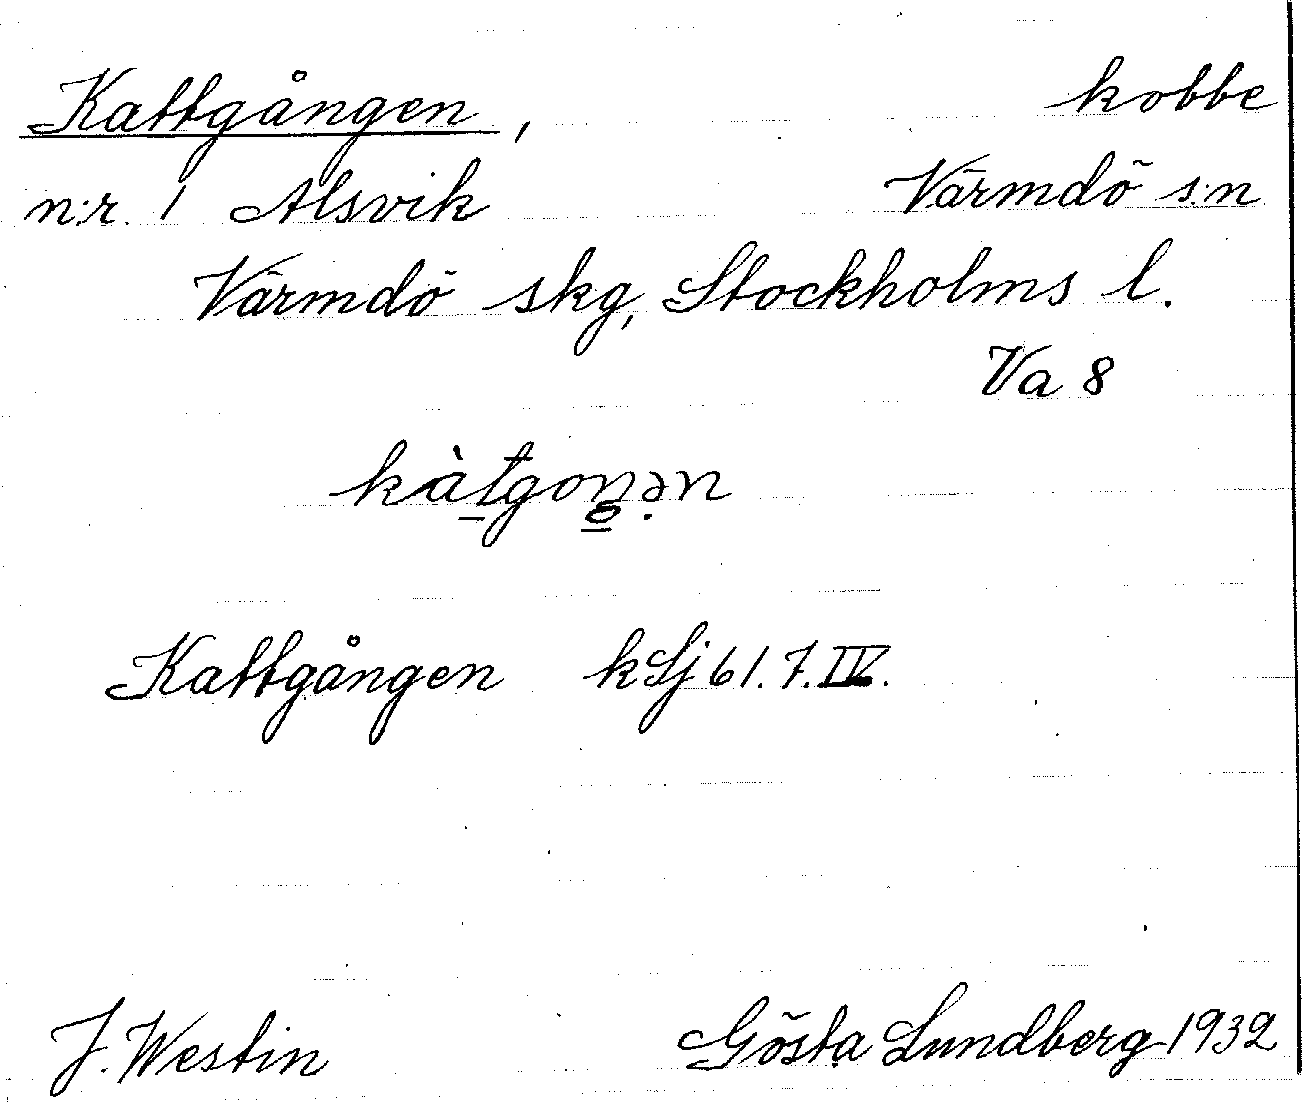 Kattgången, kobbe
n:r 1 Alsvik Värmdö s:n
Värmdö skg, Stockholms l.
Va 8
kàtgoŋən
Kattgången kSj 61.7.IV.
J. Westin Gösta Lundberg 1932